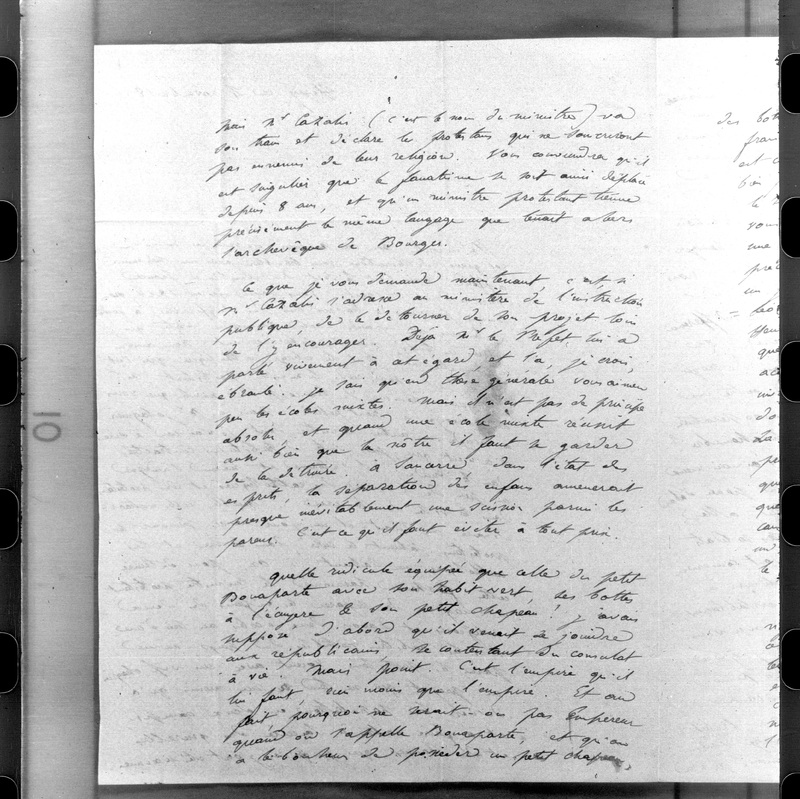 mais Mr Cazalis (c'est le nom du ministre) va
son train et déclare les protestans qui ne souscriront
pas ennemis de leur religion. Vous conviendrez qu'il
est singulier que le fanatisme se soit ainsi déplacé
depuis 8 ans, et qu'un ministre protestant tienne
précisément le même langage que tenait alors
l'archevêque de Bourges.
Ce que je vous demande maintenant, c'est si
Mr Cazalis s'adresse au ministère de l'instruction
publique, de le détourner de son projet loin
de l'y encourager. Déjà Mr le Préfet lui a
parlé vivement à cet égard, et l'a, je crois,
ébranlé. je sais qu'en thèse générale vous aimez
peu les écoles mixtes. Mais il n'est pas de principe
absolu, et quand une école mixte réussit
aussi bien que la nôtre il faut se garder
de la détruire. a Sancerre dans l'état des
esprits, la séparation des enfans amenerait
presque inévitablement une scission parmi les
parens. C'est ce qu'il faut éviter à tout prix.
quelle ridicule equipée que celle du petit
Bonaparte avec son habit vert, ses bottes
à l'écuyere & son petit chapeau! j'avais
supposé d'abord qu'il venait se joindre
aux républicains, se contentant du consulat
à vie. Mais point. C'est l'empire qu'il
lui faut, rien moins que l'empire. Et au
fait pourquoi ne serait-on pas Empereur
quand on s'appelle Bonaparte, et qu'on
a le bonheur de posséder un petit chapeau,
10